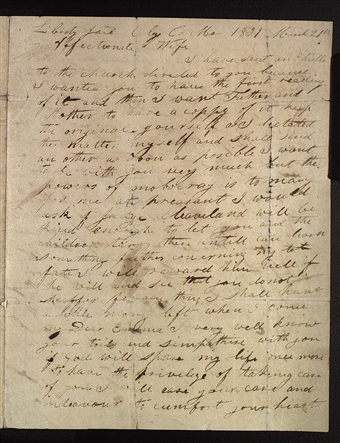 Liberty Jail Clay Co Mo 1839 March 21st
Affectionate Wife
I have sent an Epistle
to the church directed to you because
I wanted you to have the first reading
of it and then I want Father and
Mother to have a coppy of it keep
the original yourself as I dectated
the matter myself and shall send
an other as soon as posible I want
to be with you very much but the
powers of mobocray is to many
for me at preasant I would
ask if Judge Cleaveland will be
kind enough to let you and the
children tarry there untill can learn
something futher concerning my
fate I will reward him well if
he will and see that you do not
suffer for any thing I shall have
a little mony left when I come
my Dear Emma I very well know
your toils and simpathise with you
if God will spare my life once more
to have the privelege of taking care
of you I will ease your care and
indeavour to cumfort your heart